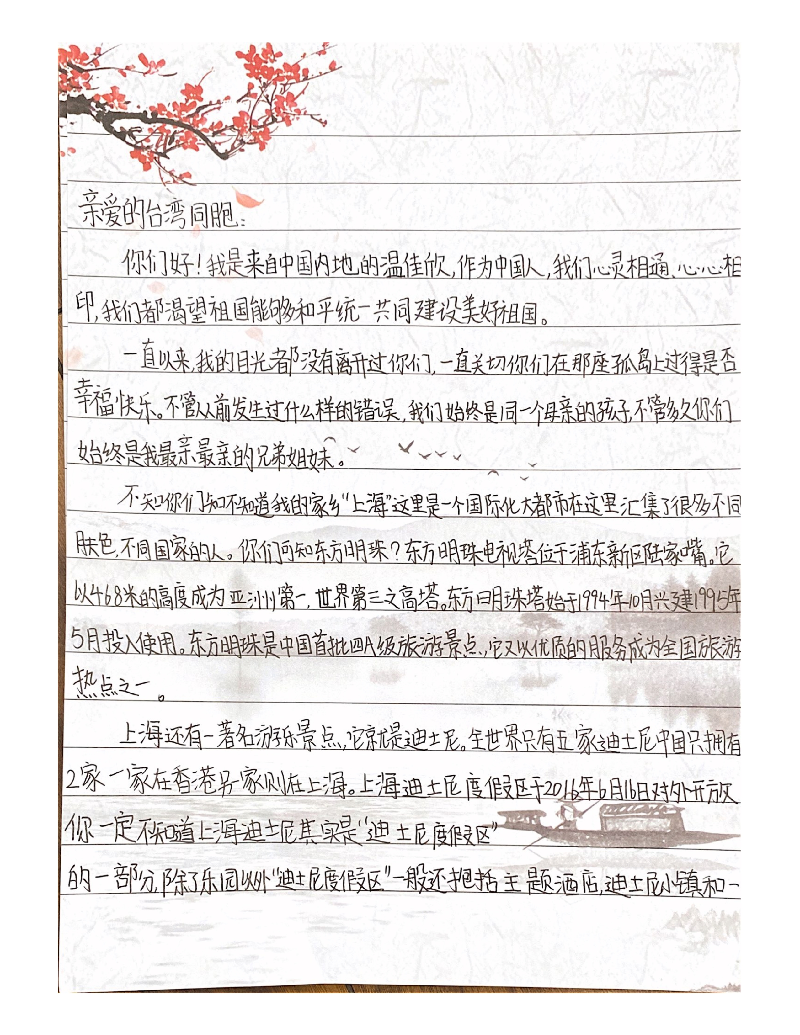 亲爱的台湾同胞:
你们好!我是来自中国内地的温佳欣,作为中国人,我们心灵相通、心心相
印,我们都渴望祖国能够和平统一共同建设美好祖国。
一直以来,我的目光都没有离开过你们,一直关切你们在那座孤岛上过得是否
幸福快乐。不管从前发生过什么样的错误,我们始终是同一个母亲的孩子,不管多久你们
始终是我最亲最亲的兄弟姐妹。
不知你们知不知道我的家乡“上海”这里是一个国际化大都市在这里汇集了很多不同
肤色,不同国家的人。你们可知东方明珠?东方明珠电视塔位于浦东新区陆家嘴。它
以468米的高度成为亚洲第一,世界第三之高塔。东方明珠塔始于1994年10月兴建1995年
5月投入使用。东方明珠是中国首批四A级旅游景点,它又以优质的服务成为全国旅游
热点之一。
上海还有一著名游乐景点,它就是迪士尼。全世界只有五家迪士尼中国只拥有
2家一家在香港另一家则在上海。上海迪士尼度假区于2016年6月16日对外开放
你一定不知道上海迪士尼其实是“迪士尼度假区”
的一部分,除了乐园以外“迪士尼度假区”一般还把括主题酒店,迪士尼小镇和一